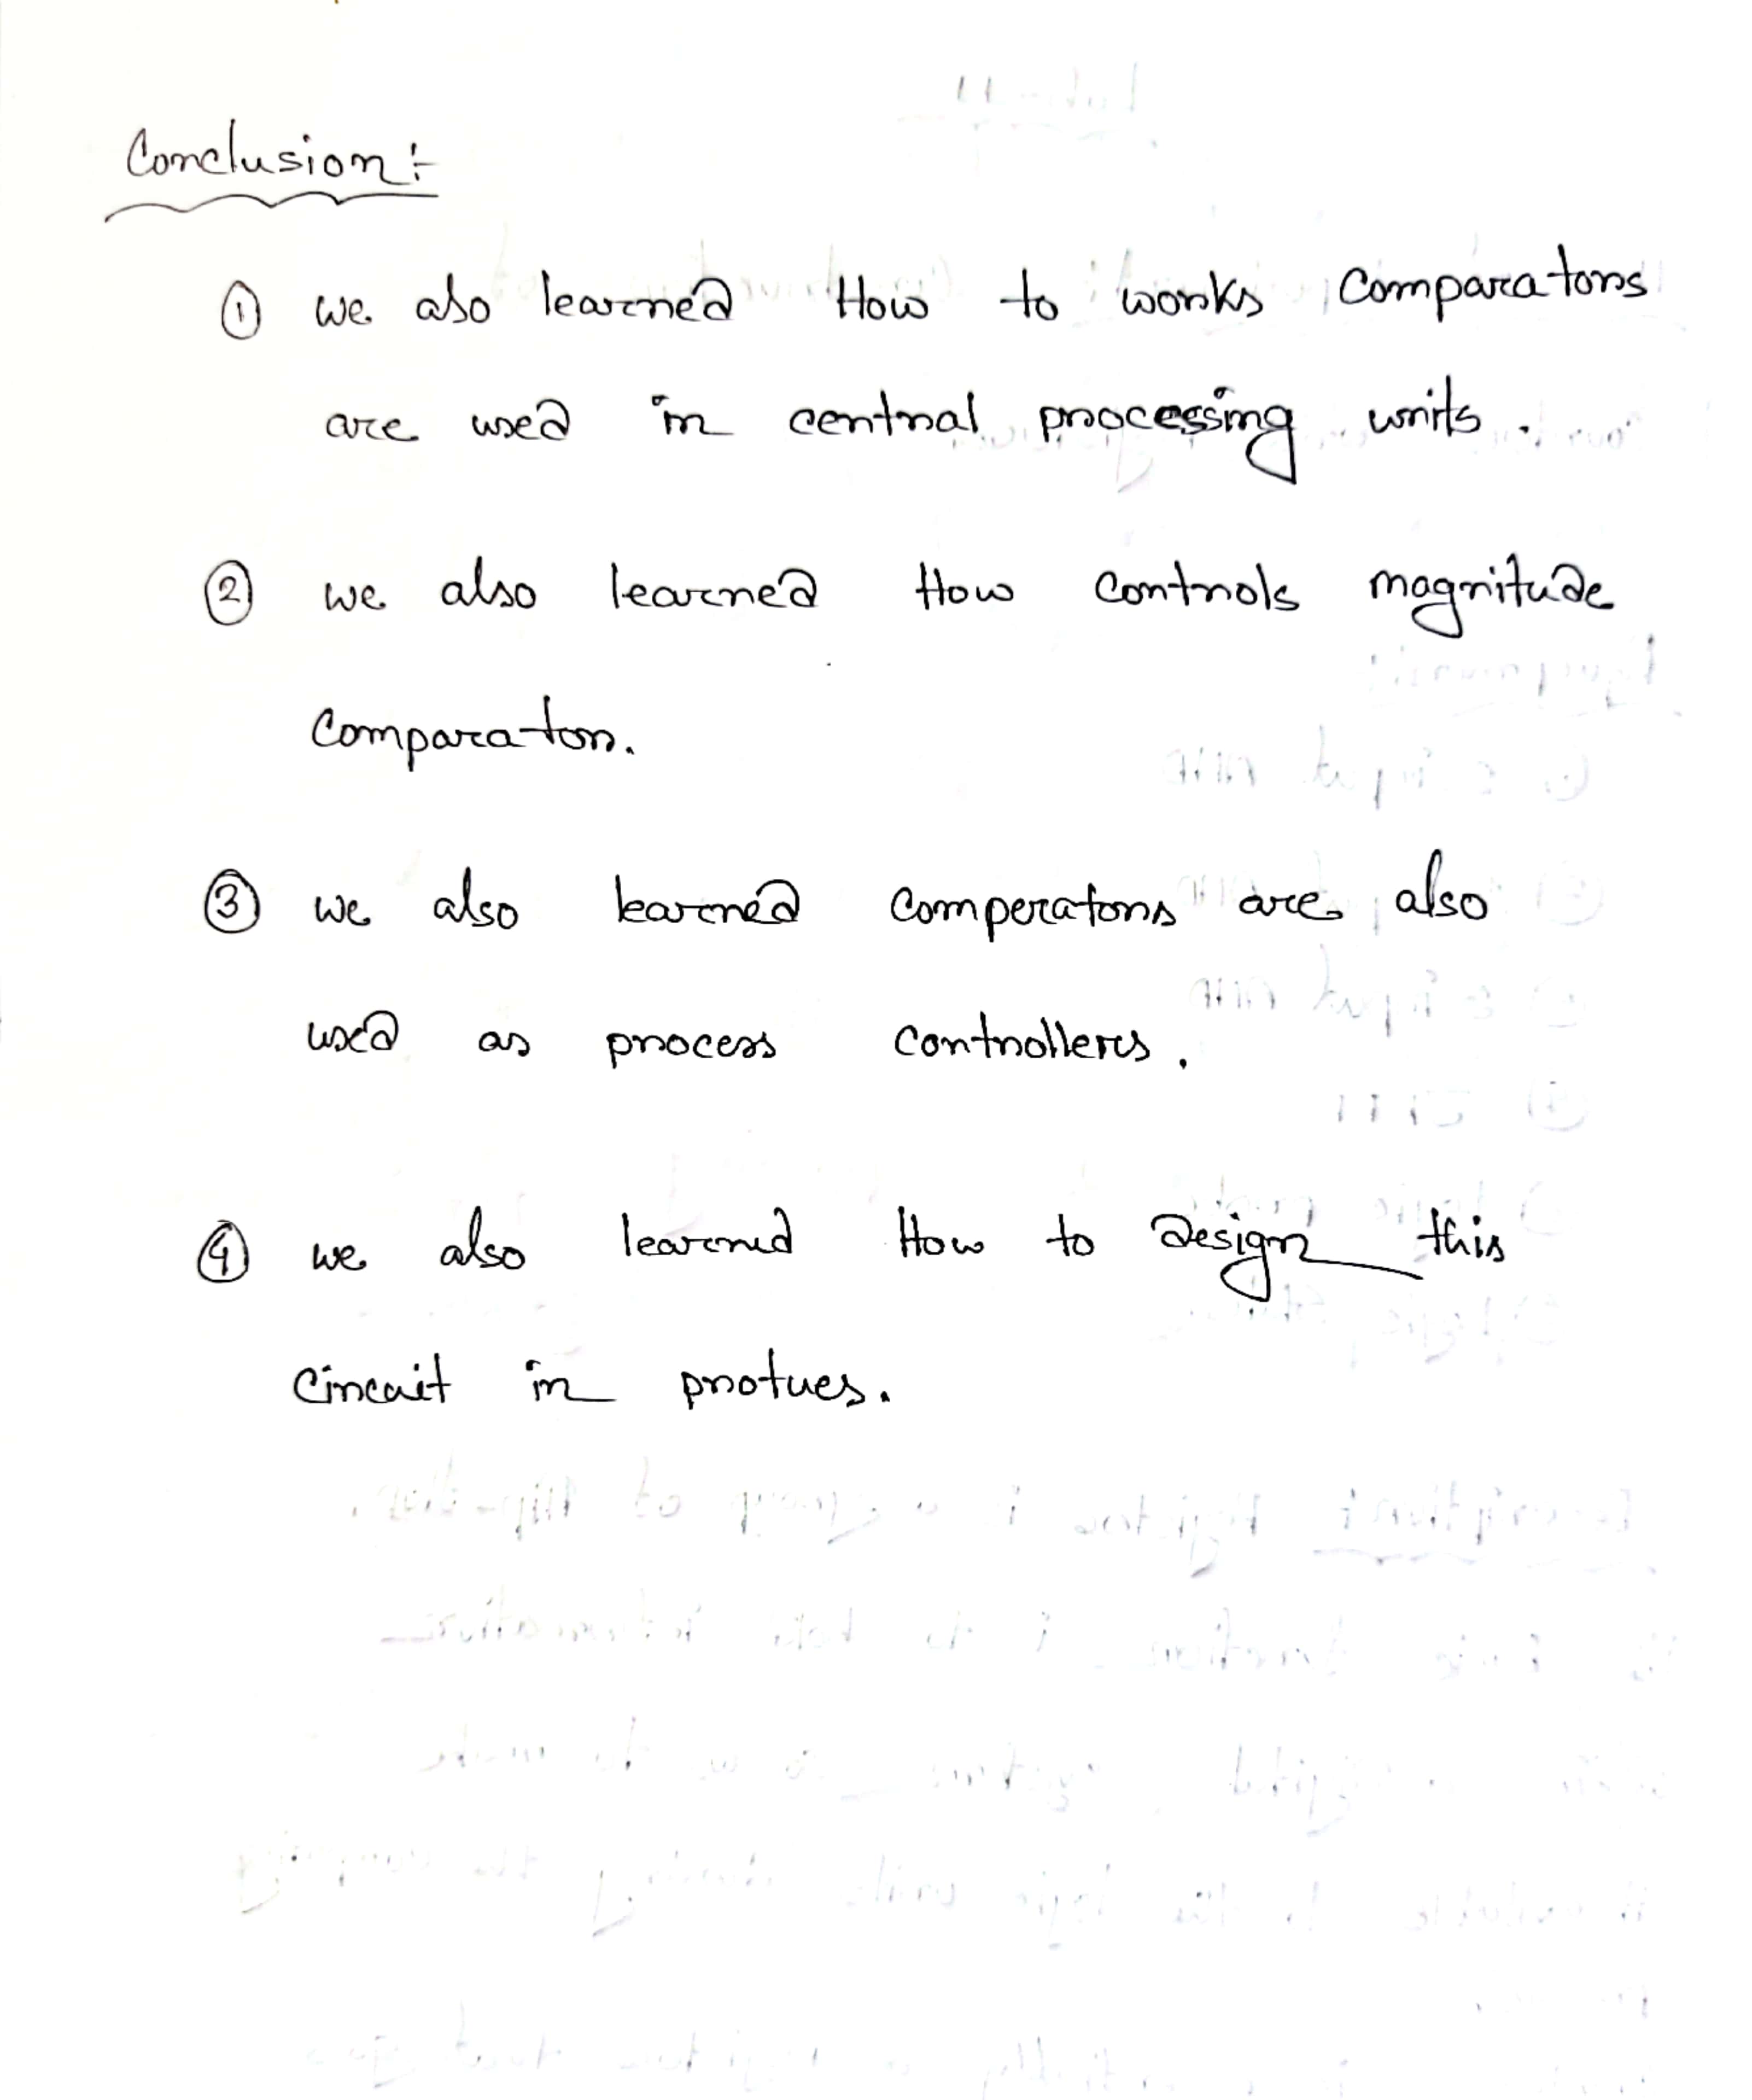 Conclusion:-
① we also learned How to works Comparators
are used in central processing units.
② we also learned How controls magnitude
Comparator.
③ we also learned comperators are also
used as process controllers.
④ we also learned How to design this
circuit in protues.